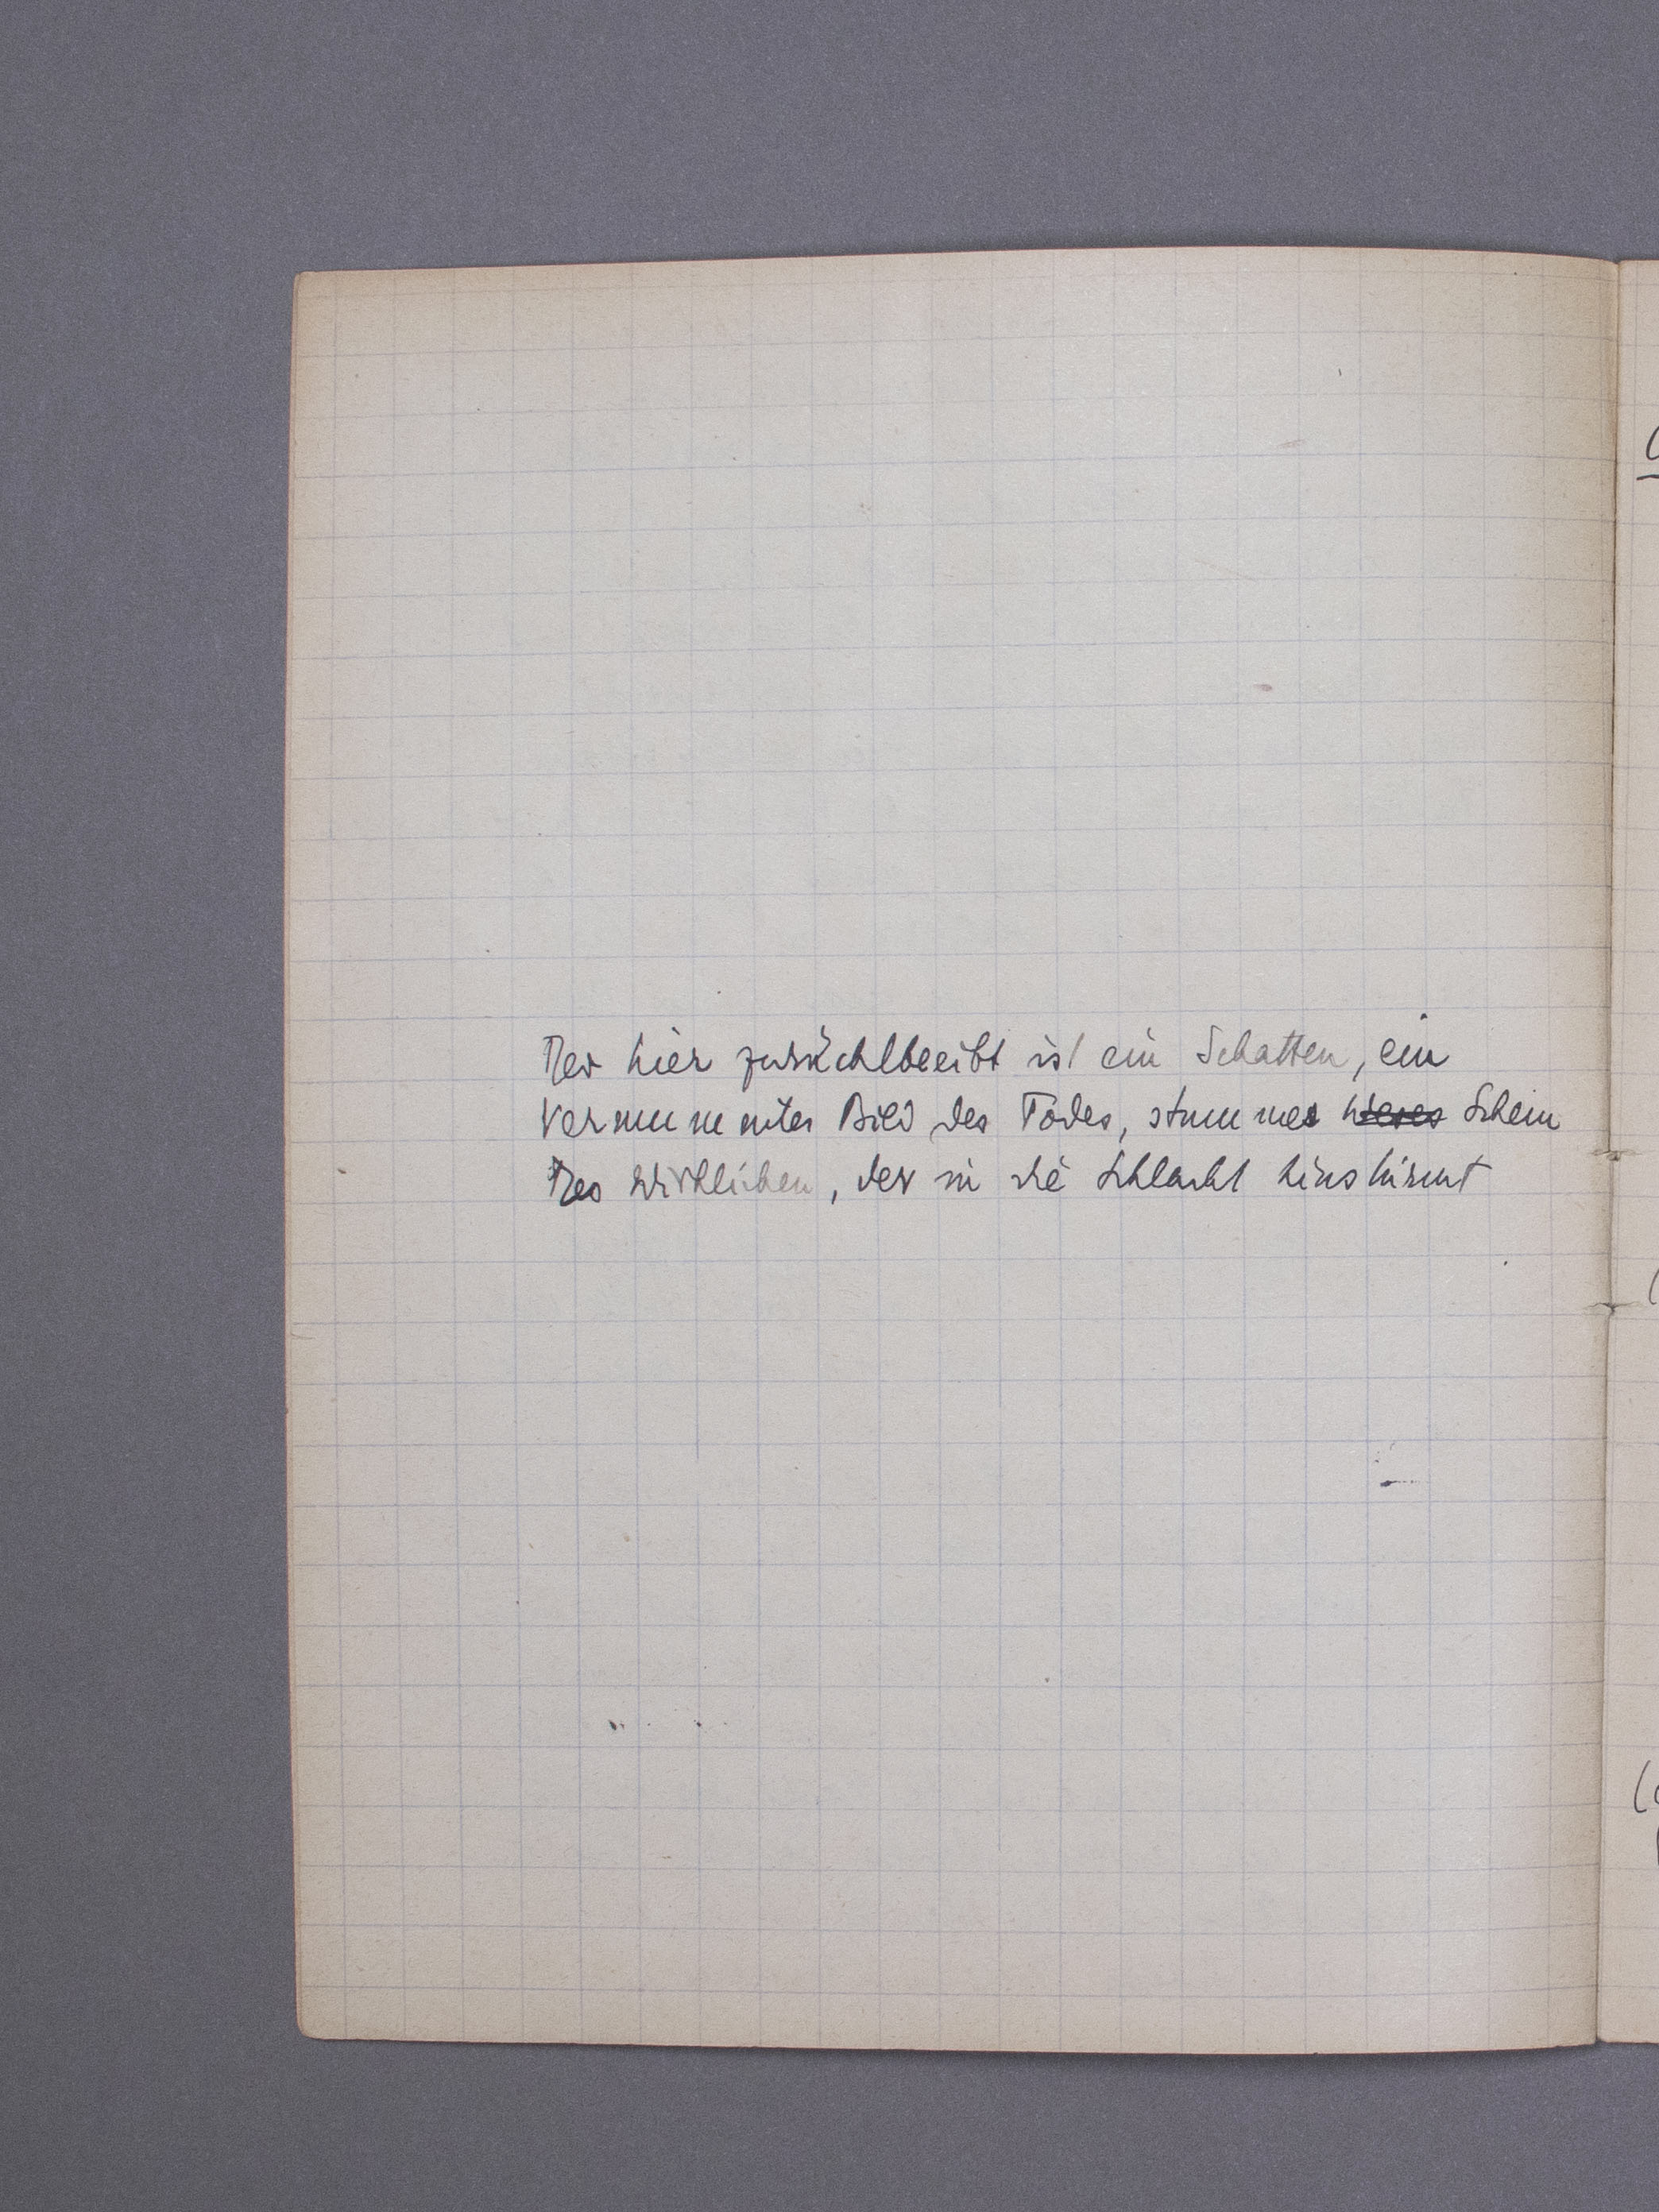 Der hier zurückbleibt ist ein Schatten, ein
Vermummtes Bild des Todes, stummer Schein
Des Wirklichen, der in die Schlacht hinstürmt